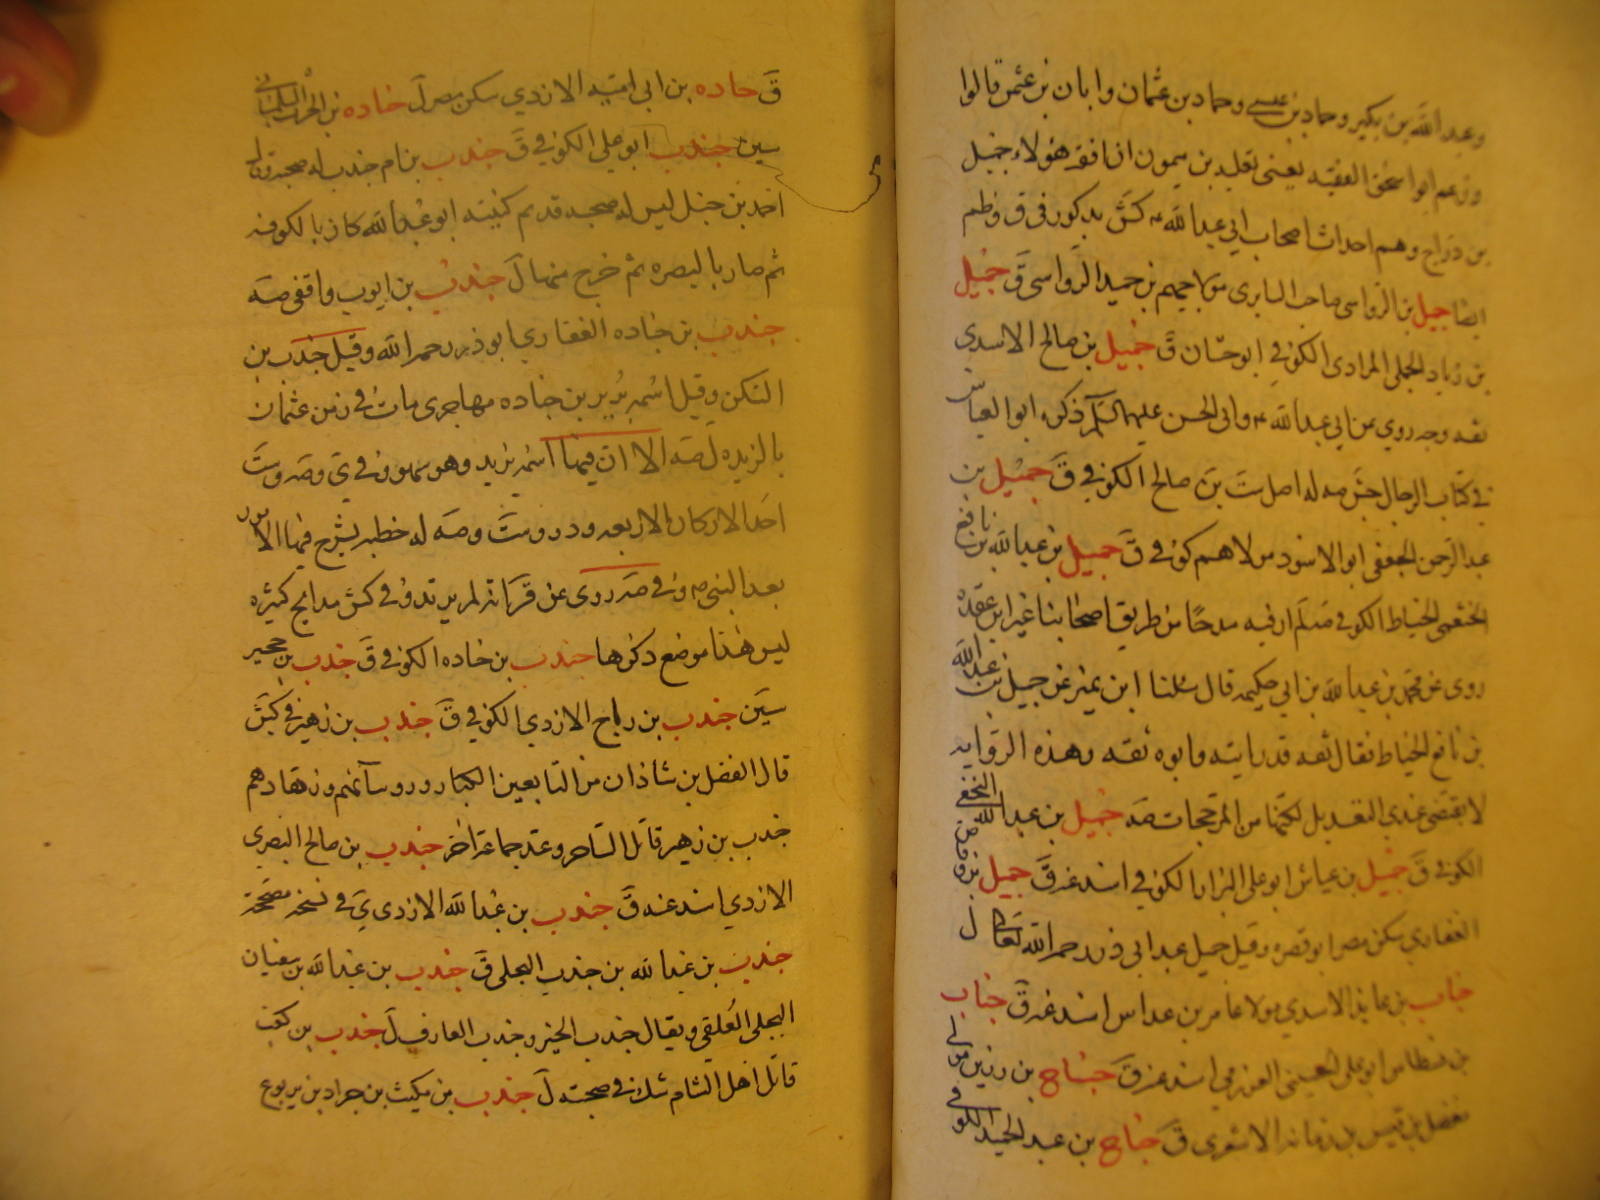 وعبد الله بن بكير وحماد بن عيسى وحماد بن عثمان وابان بن عثمن قالوا
وزعم ابو اسحق الفقيه يعنى ثعلبه بن ميمون ان افقه هؤلاء جميل
بن دراج وهم احداث اصحاب ابي عبد الله ع كش مذكور في ق وظم
ايضا جميل بن الرواسى صاحب السابرى مولا جهم بن حميد الرواسى ق جميل
بن زياد الجملى المرادى الكوفي ابو حسان ق جميل بن صالح الاسدي
ثقه وجه روي عن ابي عبد الله ع وابى الحسن عليهما السلم ذكره ابو العباس
في كتاب الرجال جش صه له اصل ست بن صالح الكوفي ق جميل بن
عبد الرحمن الجعفى ابو الاسود مولاهم كوفي ق جميل بن عبد الله بن نافع
الخثعمى الخياط الكوفي صه لم ار فيه مدحا من طريق اصحابنا غير ابن عقده
روى عن محمد بن عبد الله بن ابي حكيمه قال سئلنا ابن نمير عن جميل بن عبد الله
بن نافع الخياط فقال ثقه قد رايته وابوه ثقه وهذه الروايه
لا تقتضى عندي التعديل لكنها من المرجحات صه جميل بن عبد الله النخعى
الكوفي ق جميل بن عياش ابو على البزاز الكوفي اسند عنه ق جميل بن وقاص
الغفاري سكن مصر ابو قصره وقيل جميل عبد ابى ذر رحمه الله تعالى ل
جناب بن عايذ الاسدي مولا عامر بن عداس اسند عنه ق جناب
بن نسطاس ابو على العرزمي اسند عنه ق جناح بن رزين مولى
مفضل بن قيس بن رمانه الاشعرى ق جناح بن عبد الحميد الكوفي
ق جناده بن ابى اميه الازدي سكن مصر ل جناده بن الحرث السلمانى
سين جندب ابو على الكوفي ق جندب بن ام جندب له صحبه قال
احمد بن حنبل ليس له صحبه قديم كنيته ابو عبد الله كان بالكوفه
ثم صار بالبصره ثم خرج منها ل جندب بن ايوب واقفى صه
جندب بن جناده الغفاري ابو ذر رحمه الله وقيل جندب بن
السكن وقيل اسمه برير بن جناده مهاجرى مات في زمن عثمان
بالربذه ل صه الا ان فيها اسمه بريد وهو سهو وفي ي وصه وست
احد الاركان الاربعه ود وست وصه له خطبه يشرح فيها الامور
بعد النبي ص وفي صه روى عن ق ر انه لم يرتد وفي كش مدايح كثيره
ليس هذا موضع ذكرها جندب بن جناده الكوفي ق جندب بن حجير
سين جندب بن رباح الازدي الكوفي ق جندب بن زهير في كش
قال الفضل بن شاذان من التابعين الكبار ورؤسآئهم وزهادهم
جندب بن زهير قاتل الساحر وعد جماعة اخر جندب بن صالح البصرى
الازدي اسند عنه ق جندب بن عبد الله الازدى ي في نسخه مصححه
جندب بن عبد الله بن جندب البجلى ق جندب بن عبد الله بن سفيان
البجلى العلقي ويقال جندب الخير وجندب العارف ل جندب بن كعب
قاتل اهل الشام شك في صحبته ل جندب بن مكيث بن جراد بن يربوع